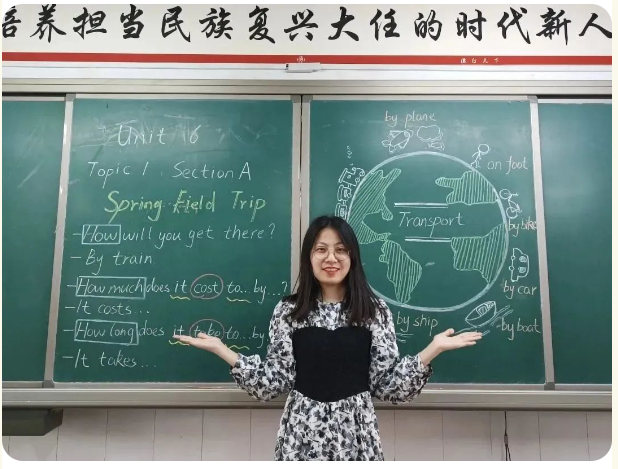 培养担当民族复兴大任的时代新人
Unit 6
Topic 1 Section A
Spring Field Trip
-How will you get there?
-By train
-How much does it cost to... by...?
-It costs...
-How long does it to be to... by
-It takes...
by plane
on foot
Transport
by bike
by car
by ship
-by boat